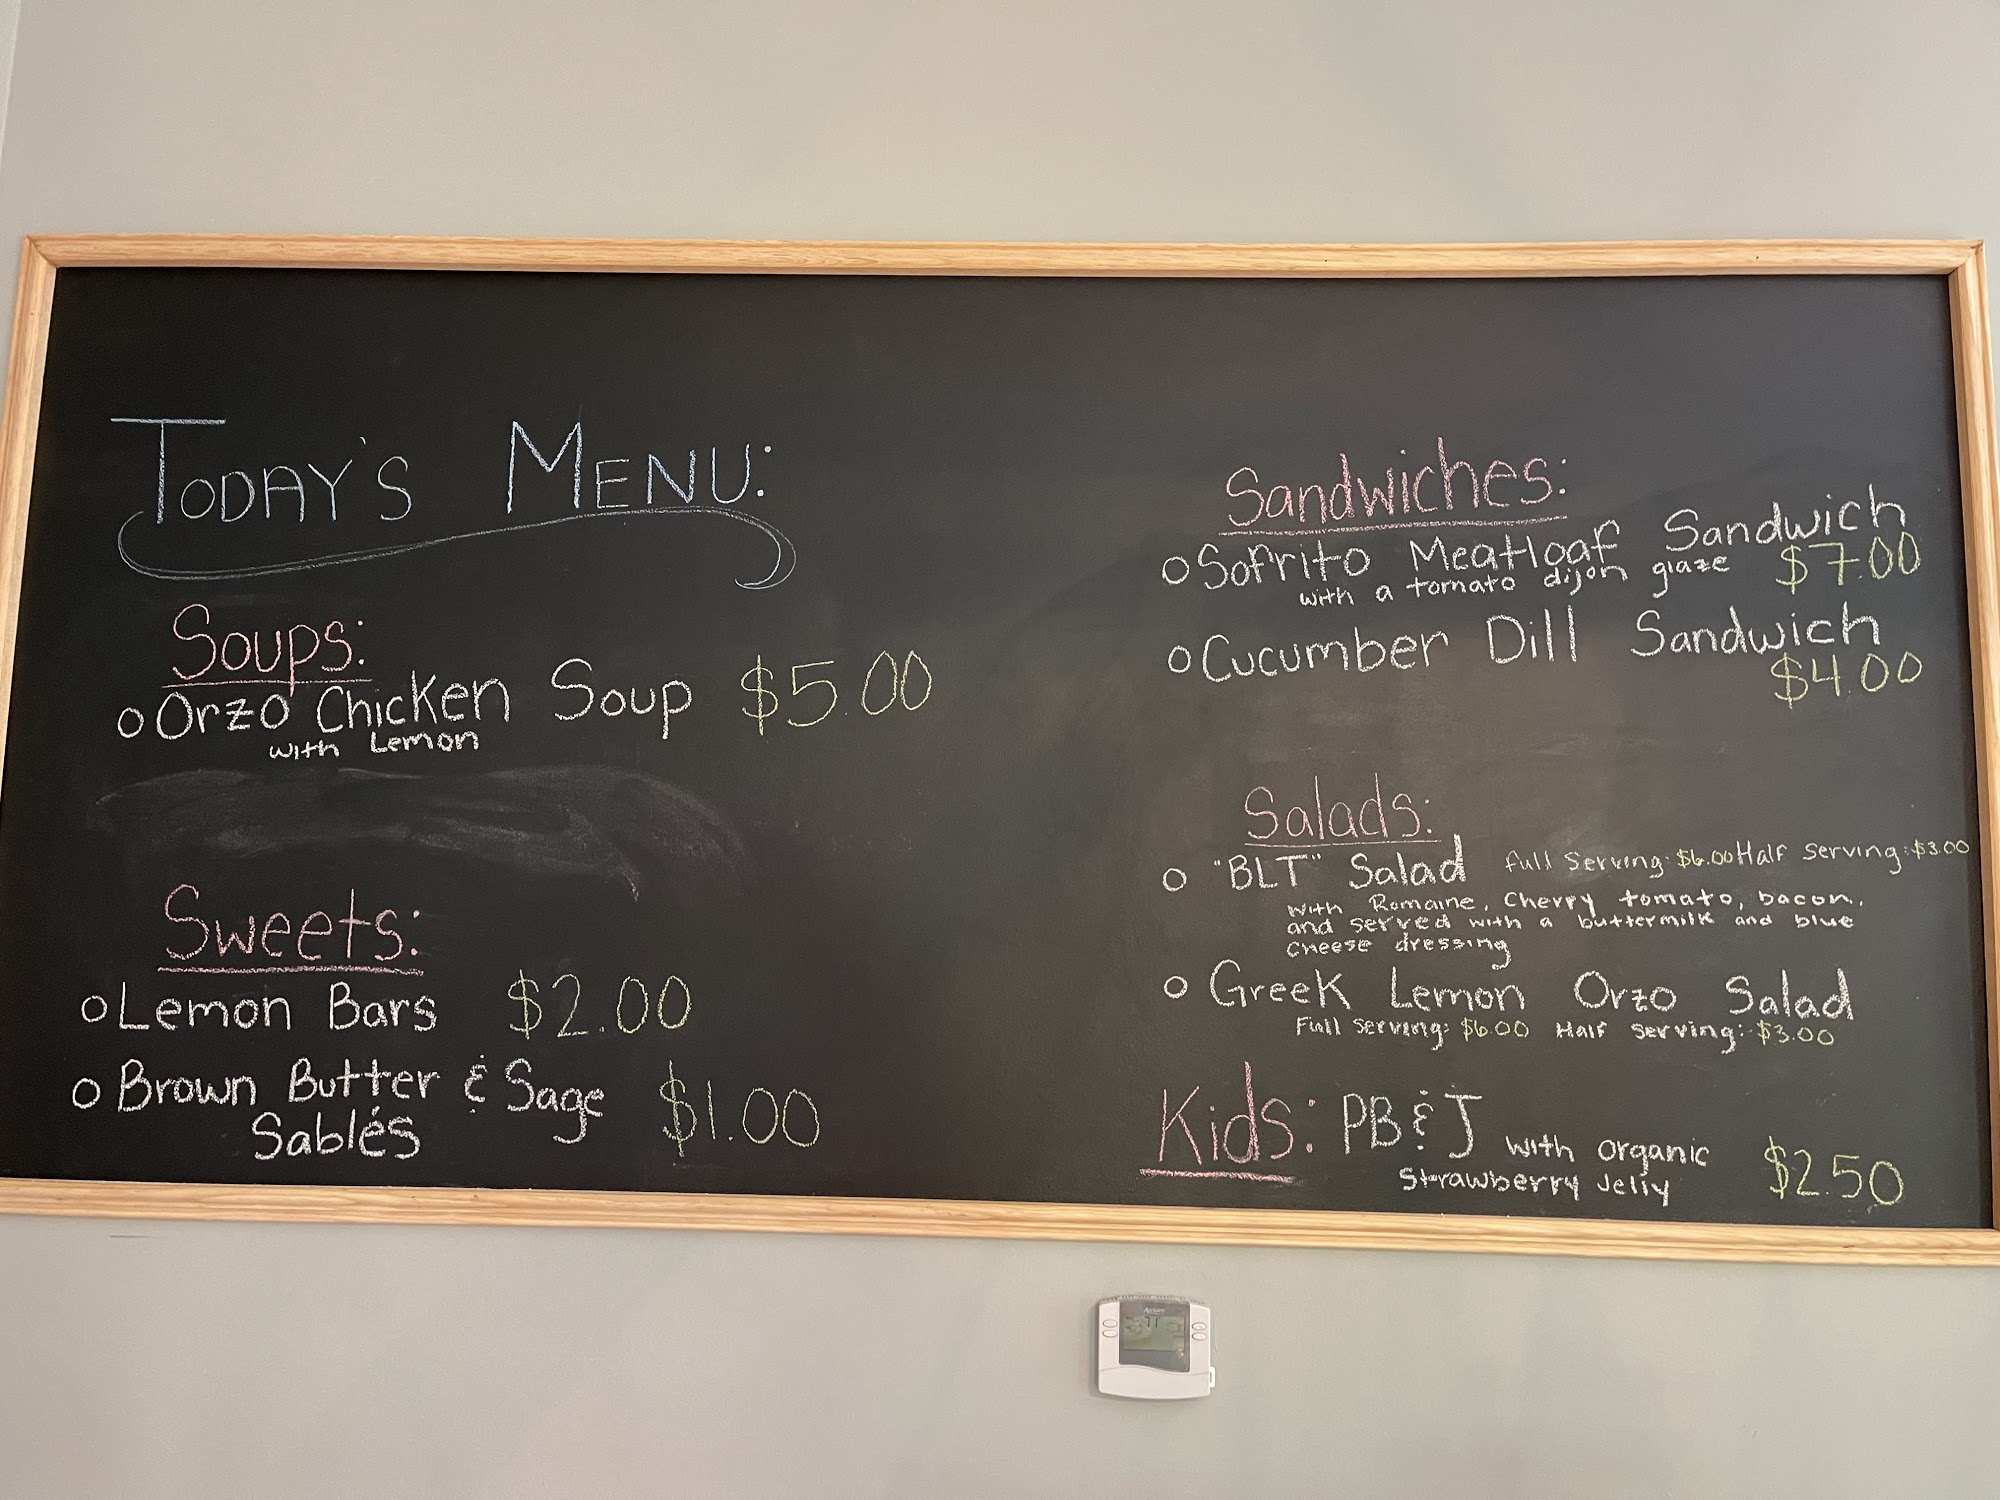 TODAY'S MENU:
Soups:
Orzo Chicken Soup $5.00
with Lemon
Sweets:
Lemon Bars $2.00
Brown Butter & Sage $1.00
Sablés
Sandwiches:
Sofrito Meatloaf Sandwich
with a tomato dijon glaze $7.00
Cucumber Dill Sandwich
$4.00
Salads:
"BLT" Salad Full Serving: $6.00 Half Serving: $3.00
with Romaine, Cherry tomato, bacon,
and served with a buttermilk and blue
cheese dressing
Greek Lemon Orzo Salad
Full Serving: $6.00 Half Serving: $3.00
Kids: PB & J with organic $2.50
Strawberry Jelly
71